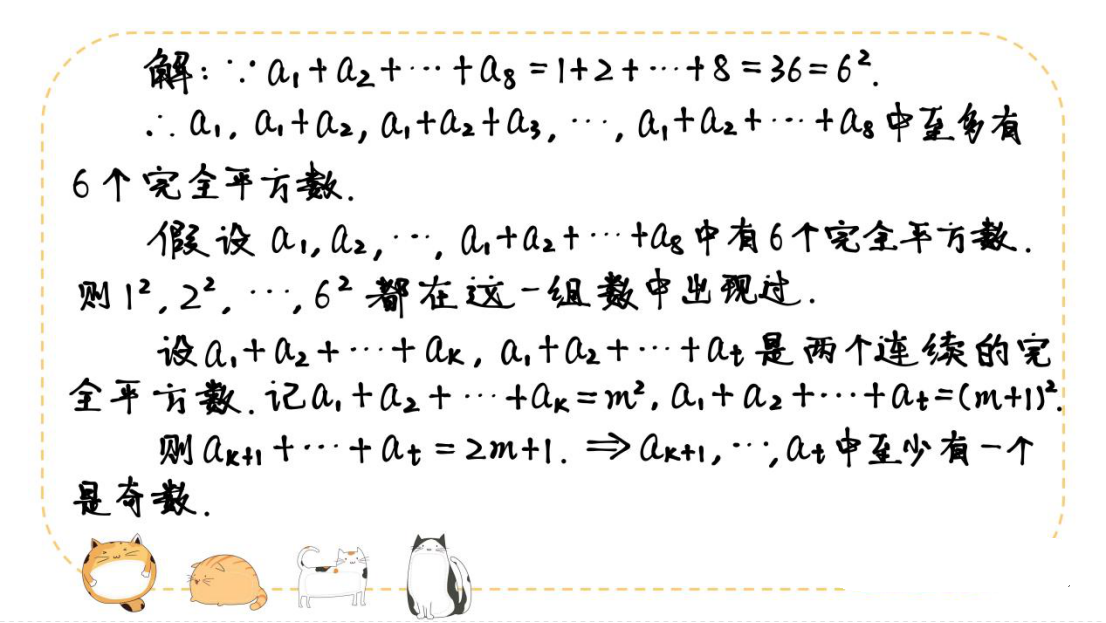 解：∵ a₁+a₂+⋯+a₈=1+2+⋯+8=36=6².
∴ a₁, a₁+a₂, a₁+a₂+a₃, ⋯, a₁+a₂+⋯+a₈中至多有
6个完全平方数.
假设 a₁, a₂, ⋯, a₁+a₂+⋯+a₈中有6个完全平方数.
则 1², 2², ⋯, 6² 都在这一组数中出现过.
设a₁+a₂+⋯+aₖ, a₁+a₂+⋯+aₜ是两个连续的完
全平方数. 记a₁+a₂+⋯+aₖ=m², a₁+a₂+⋯+aₜ=(m+1)².
则aₖ₊₁+⋯+aₜ=2m+1. ⇒aₖ₊₁, ⋯, aₜ中至少有一个
是奇数.